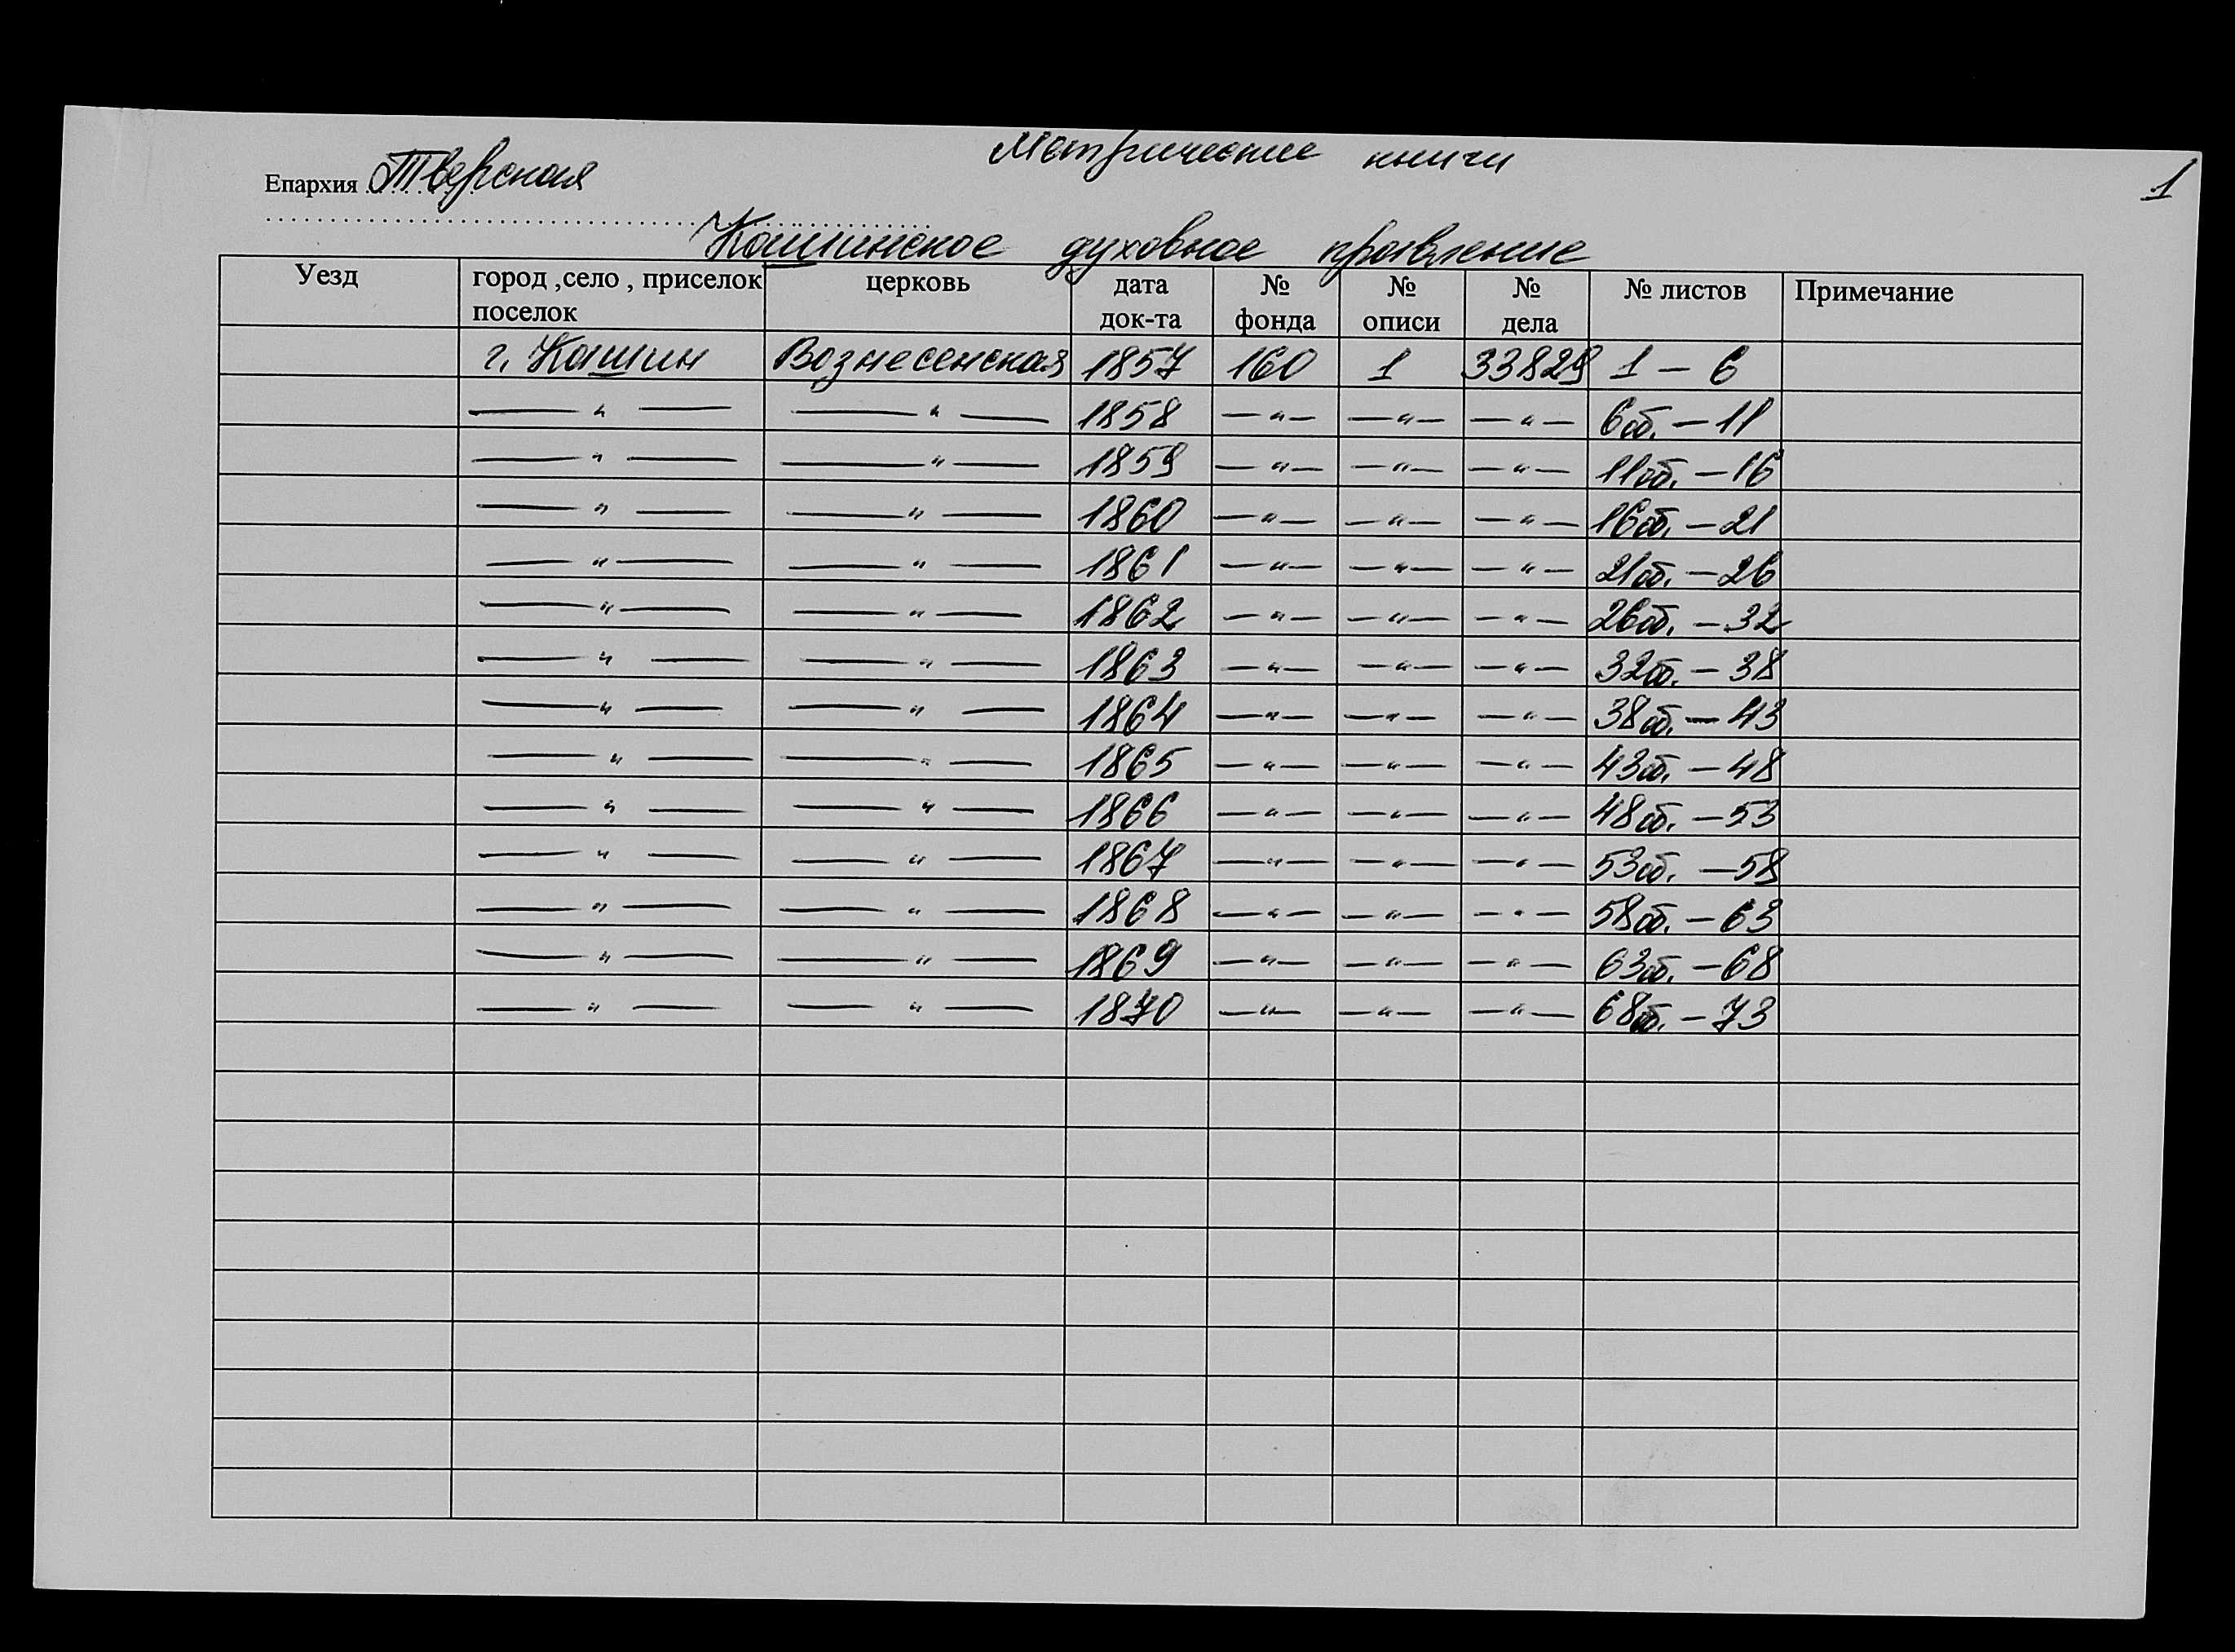 Метрические книги
1
Епархия Тверская
Кашинское духовное правление
Уезд город ,село , приселок поселок церковь дата док-та № фонда № описи № дела № листов Примечание
г. Кашин Вознесенская 1857 160 1 33829 1 – 6
— " — — " — 1858 — " — — " — — " — 6об. – 11
— " — — " — 1859 — " — — " — — " — 11об. – 16
— " — — " — 1860 — " — — " — — " — 16об. – 21
— " — — " — 1861 — " — — " — — " — 21об. – 26
— " — — " — 1862 — " — — " — — " — 26об. – 32
— " — — " — 1863 — " — — " — — " — 32об. – 38
— " — — " — 1864 — " — — " — — " — 38об. – 43
— " — — " — 1865 — " — — " — — " — 43об. – 48
— " — — " — 1866 — " — — " — — " — 48об. – 53
— " — — " — 1867 — " — — " — — " — 53об. – 58
— " — — " — 1868 — " — — " — — " — 58об. – 63
— " — — " — 1869 — " — — " — — " — 63об. – 68
— " — — " — 1870 — " — — " — — " — 68об. – 73